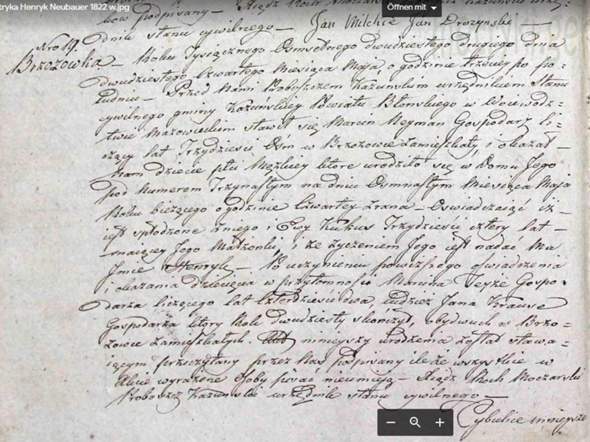 tryka Henryk Neubauer 1822 w.jpg
Öffnen mit
dnie stanu cywilnego — Jan Milchie Jan Drozynski —
Nro 19.
Brzozowka — Roku Tysiącznego Osmsetnego dwudziestego drugiego dnia
dwudziestego czwartego Miesiąca Maja o godzinie trzeciey po po-
łudniu — Przed Nami Proboszczem Kazunskim urzędnikiem stanu
cywilnego gminy Kazunskiey Powiatu Błonskiego w Wojewodz-
twie Mazowieckim stawił się Marcin Neyman Gospodarz li-
czący lat Trzydzieści Osm w Brzozowce zamieszkały i okazał
Nam dziecie płci Męzkiey ktore urodziło się w Domu Jego
pod Numerem Trzynastym na dniu Osmnastym Miesiąca Maja
Roku bieżącego o godzinie czwartey zrana — Oswiadczaiąc iż
jest spłodzone z niego i Ewy Kukus Trzydzieście cztery lat
maiącey Jego Małżonki, i że życzeniem Jego jest nadać Mu
Jmie Henryk — Po uczynieniu powyższego oswiadczenia
i okazania dziecięcia w przytomnosci Marcina Gospo-
darza liczącego lat czterdzieści dwa, tudzież Jana Krause
Gospodarza ktory Rok dwudziesty skończył, obydwuch w Brzo-
zowce zamieszkałych. Akt ninieyszy urodzenia został stawa-
iącym przeczytany przez Nas podpisany ile że wszystkie w
Akcie wyrażone Osoby pisać nieumieią — Xiądz Roch Moczarski
Proboszcz Kazunski urzędnik stanu cywilnego —
Cybulice mnieysze